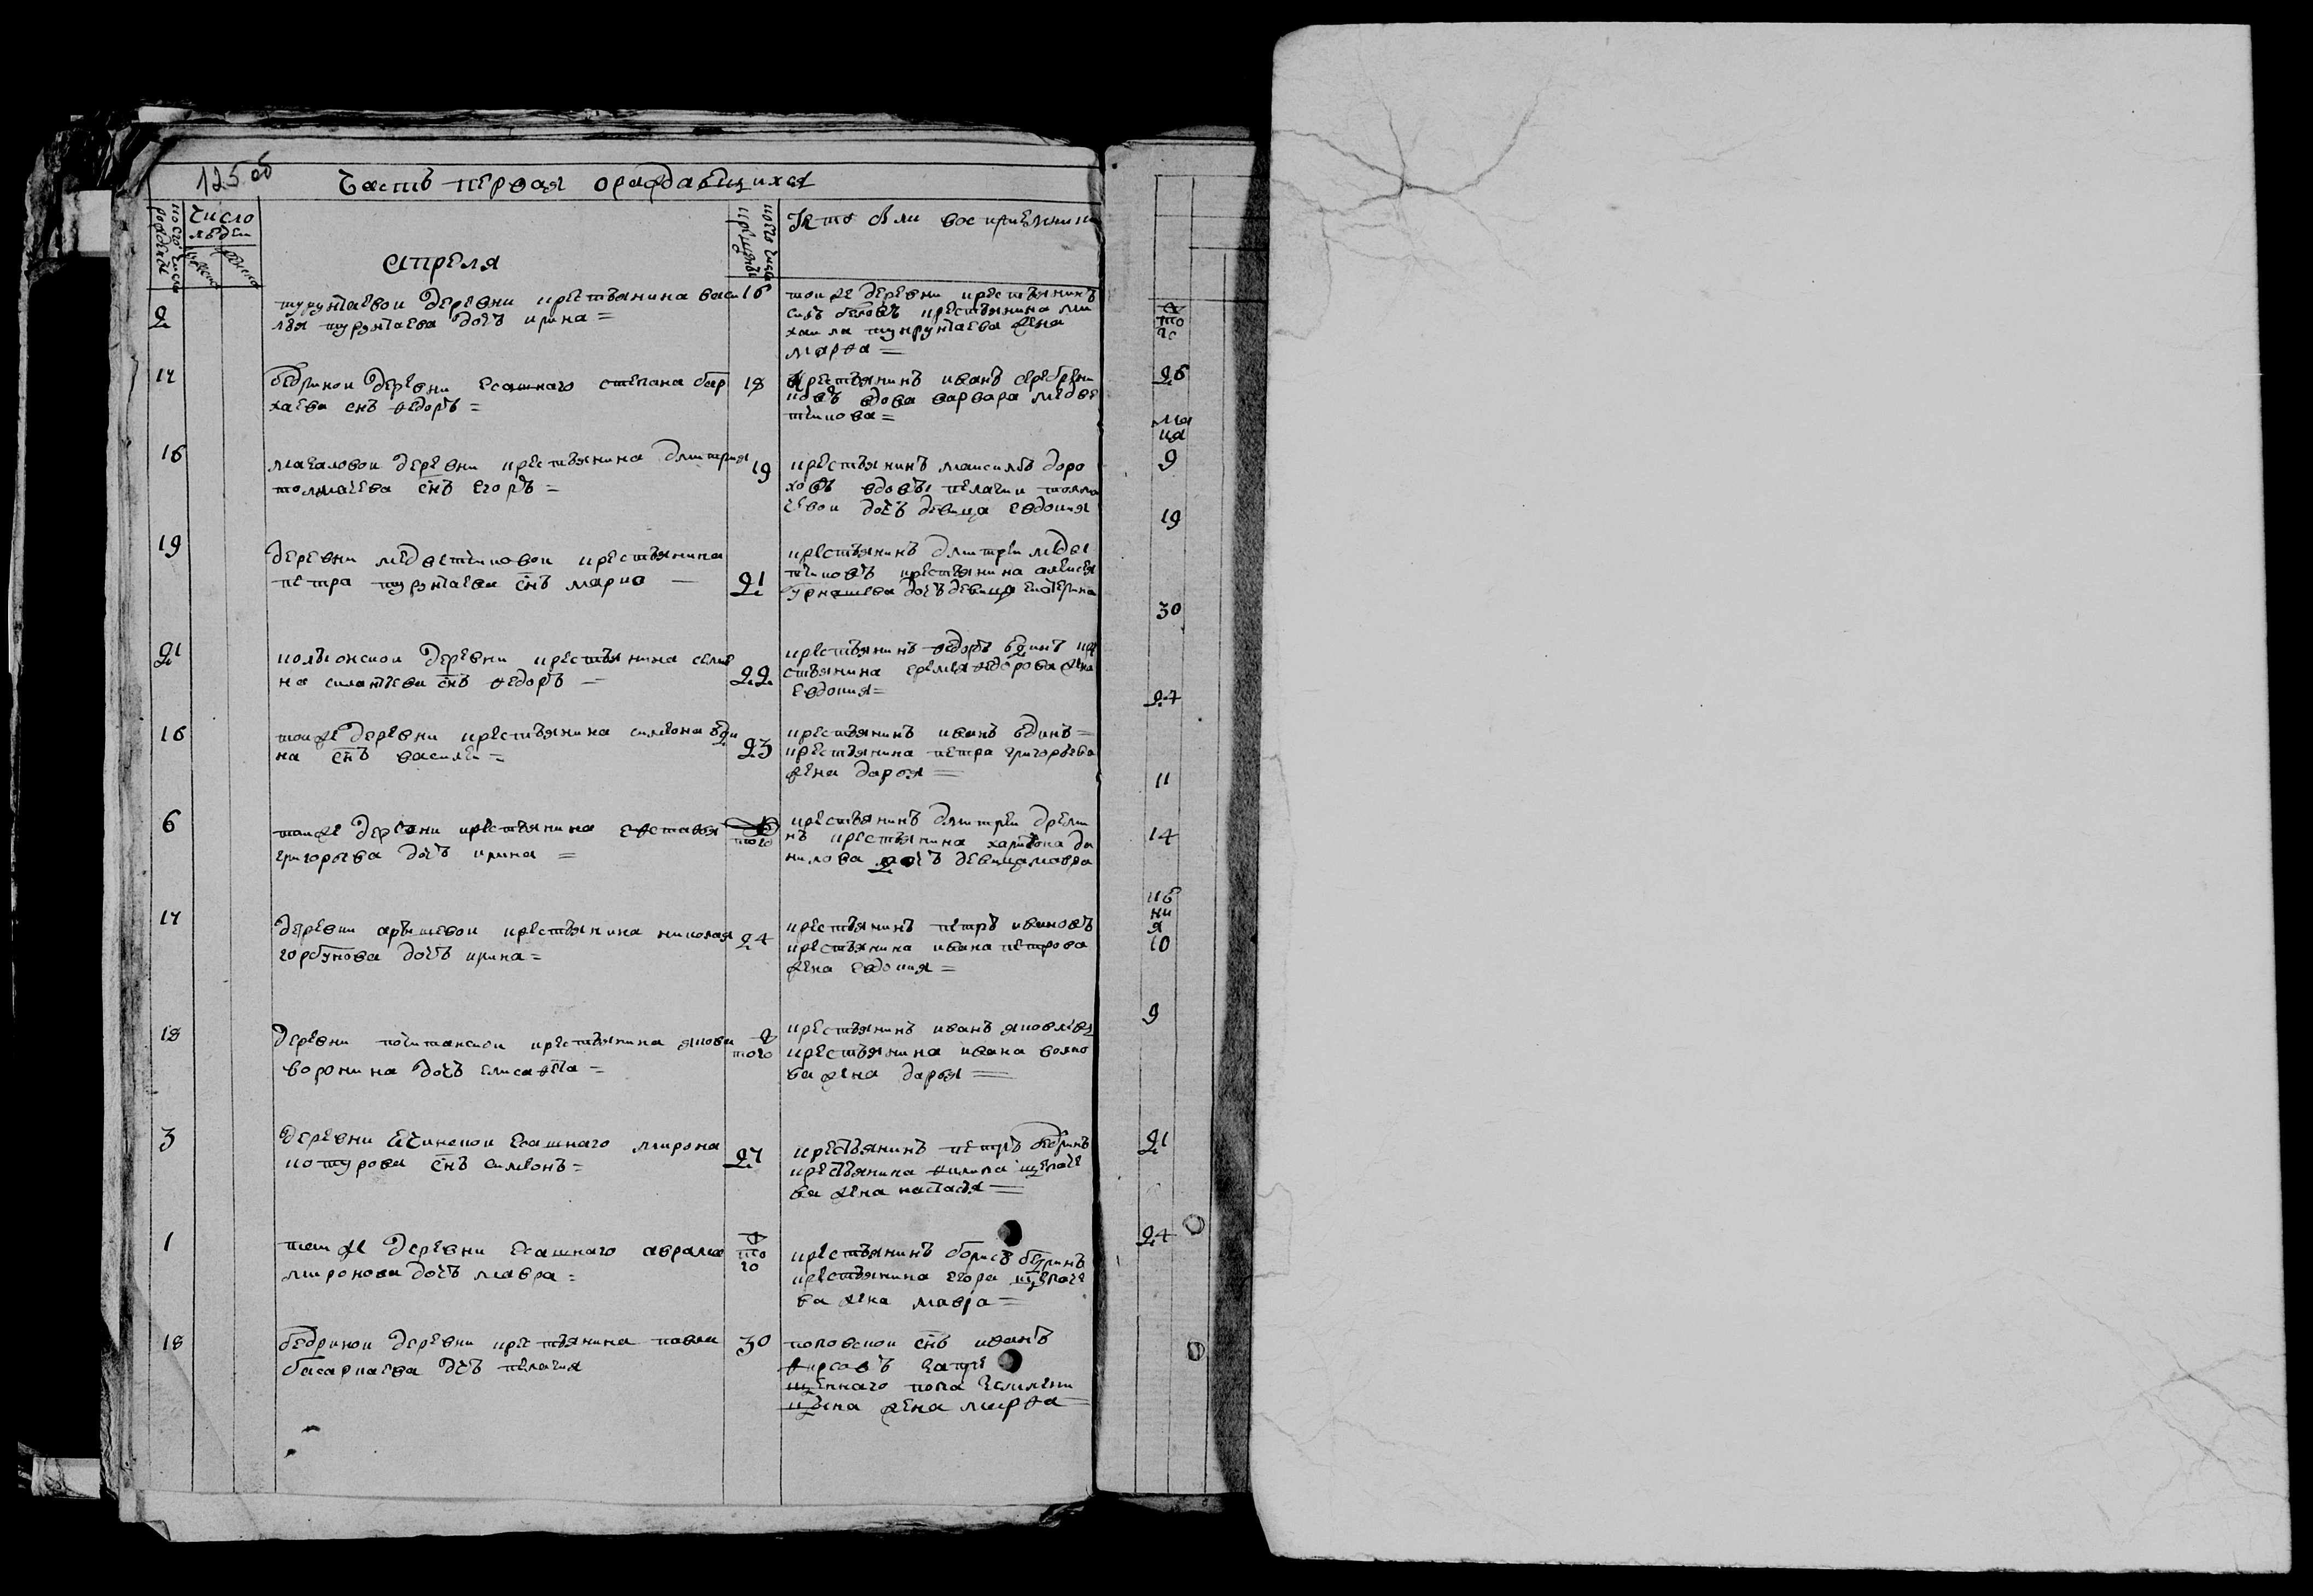 125 об
Часть первая ораждающихся
коего числа рождены
Число людеи
Апреля
коего числа крещены
Кто были восприемники
2
турунтаевои деревни крестьянина васи
лья турунтаева дочь ирина =
16
тои же деревни крестьянинъ
крестьянина ми
хаила турунтаева жена
марѳа =
17
бедринои деревни есашнаго степана бар
хаева снъ ѳедоръ =
18
Крестьянинъ иванъ серебрени
ковъ вдова варвара медве
тчикова =
16
магаловои деревни крестьянина дмитрия
толмачева снъ егоръ =
19
крестьянинъ максимъ доро
ховъ вдовы пелагии толма
чевои дочь девица евдокия
19
деревни медветчиковои крестьянина
петра турунтаева снъ марко —
21
крестьянинъ дмитреи медве
тчиковъ крестьянина алексея
бурнашева дочь девица екатерина
21
крестьянина семио
на силантьева снъ ѳедоръ =
22
крестьянинъ ѳедоръ ѣдинъ кре
стьянина еремея ѳедорова жена
евдокия =
16
тои же деревни крестьянина симеона ѣди
на снъ василеи =
23
крестьянинъ иванъ ѣдинъ =
крестьянина петра григорьева
жена дарья =
6
тои же деревни крестьянина евставья
григорьева дочь ирина =
того
крестьянинъ дмитреи дреми
нъ крестьянина харитона да
нилова дочь девица мавра
17
деревни крестьянина николая
горбунова дочь ирина =
24
крестьянинъ петръ ивановъ
крестьянина ивана петрова
жена евдокия =
18
деревни крестьянина якова
воронина дочь елисавѳта =
того
крестьянинъ иванъ яковлевъ
крестьянина ивана волко
ва жена дарья =
3
деревни есашнаго мирона
котурова снъ симеонъ =
27
крестьянинъ петръ бедринъ
крестьянина ѳилипа щепаче
ва жена настасья =
1
тои же деревни есашнаго аврама
миронова дочь мавра =
то
го
крестьянинъ борисъ бедринъ
крестьянина егора щепаче
ва жена мавра =
18
бедринои деревни крестьянина павла
басаркаева дочь пелагия
30
поповскои снъ иванъ
ѳирсовъ
щеннаго попа
жена марѳа =
то
го
26
маия
9
19
30
27
11
14
июния
10
9
21
24